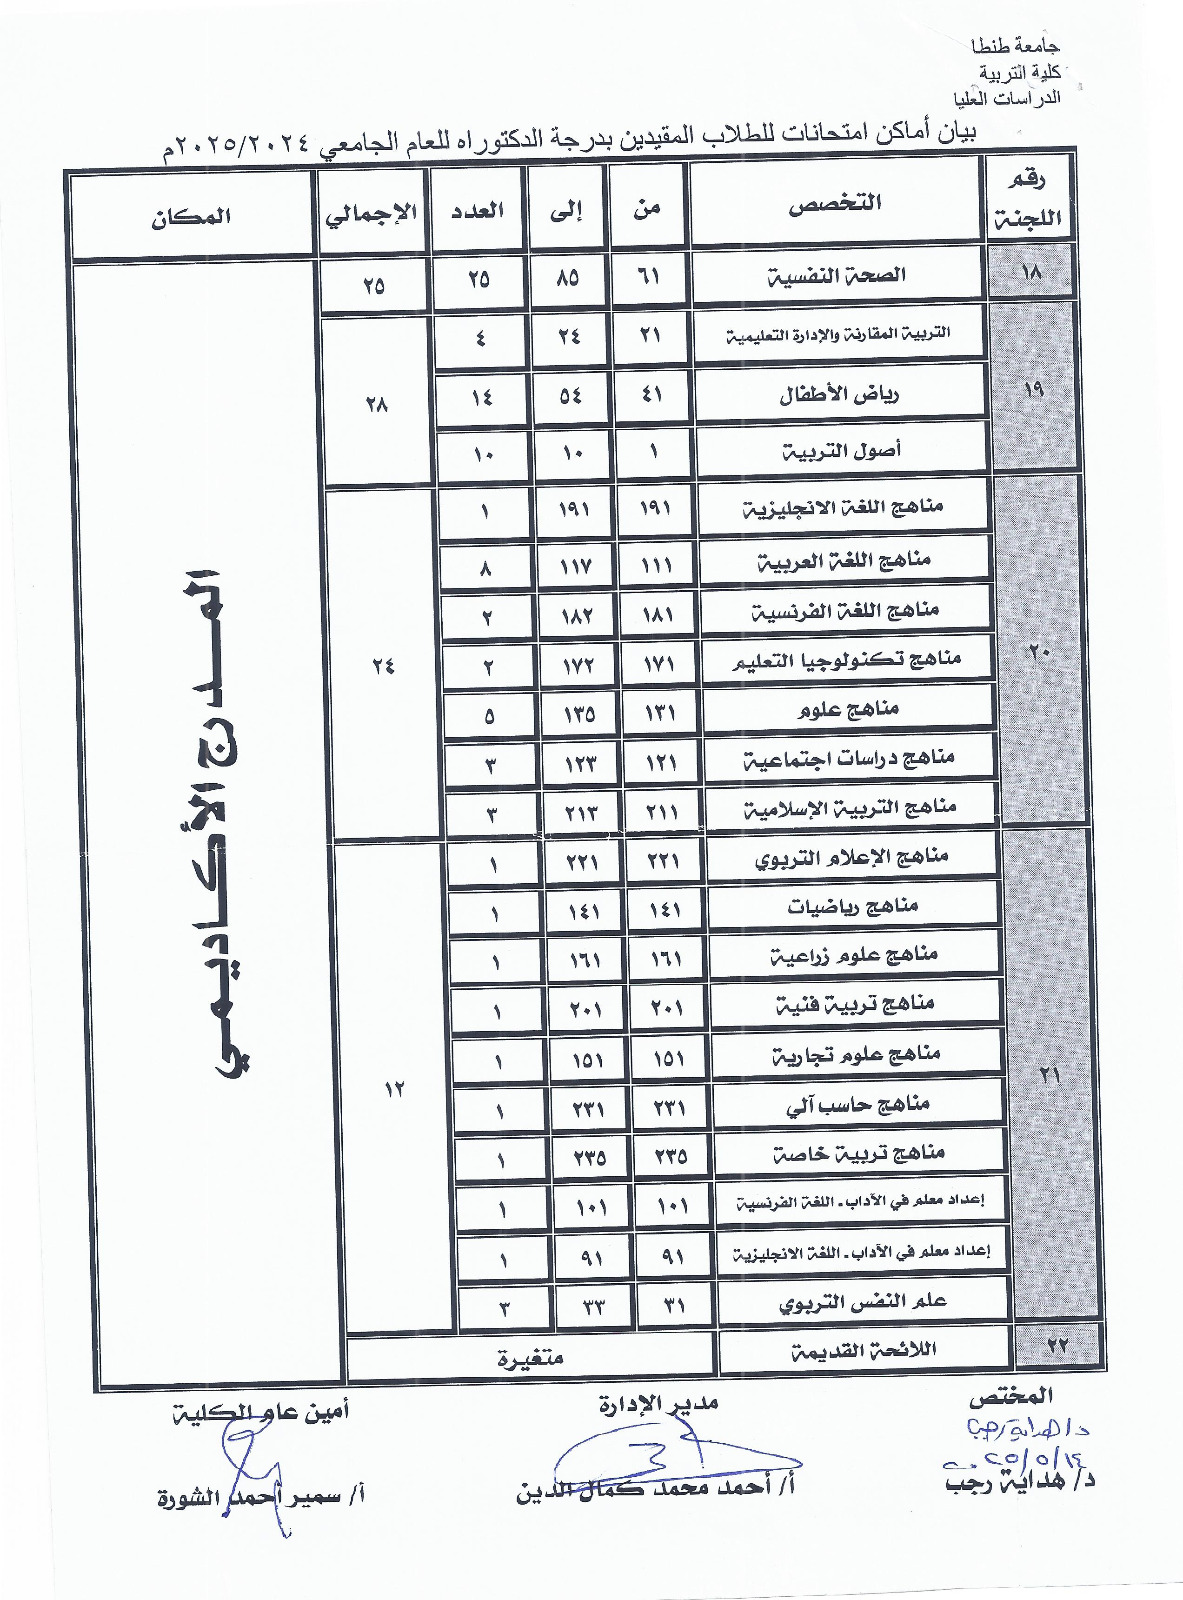 جامعة طنطا
كلية التربية
الدراسات العليا
بيان أماكن امتحانات للطلاب المقيدين بدرجة الدكتوراه للعام الجامعي ٢٠٢٥/٢٠٢٤م
رقم اللجنة التخصص من إلى العدد الإجمالي المكان
١٨ الصحة النفسية ٦١ ٨٥ ٢٥ ٢٥
التربية المقارنة والإدارة التعليمية ٢١ ٢٤ ٤
١٩ رياض الأطفال ٤١ ٥٤ ١٤ ٢٨
أصول التربية ١ ١٠ ١٠
مناهج اللغة الانجليزية ١٩١ ١٩١ ١
مناهج اللغة العربية ١١١ ١١٧ ٨
مناهج اللغة الفرنسية ١٨١ ١٨٢ ٢
٢٠ مناهج تكنولوجيا التعليم ١٧١ ١٧٢ ٢ ٢٤
مناهج علوم ١٣١ ١٣٥ ٥
مناهج دراسات اجتماعية ١٢١ ١٢٣ ٣
مناهج التربية الإسلامية ٢١١ ٢١٣ ٣
المدرج الأكاديمي
مناهج الإعلام التربوي ٢٢١ ٢٢١ ١
مناهج رياضيات ١٤١ ١٤١ ١
مناهج علوم زراعية ١٦١ ١٦١ ١
مناهج تربية فنية ٢٠١ ٢٠١ ١
٢١ مناهج علوم تجارية ١٥١ ١٥١ ١ ١٢
مناهج حاسب آلي ٢٣١ ٢٣١ ١
مناهج تربية خاصة ٢٣٥ ٢٣٥ ١
إعداد معلم في الآداب ـ اللغة الفرنسية ١٠١ ١٠١ ١
إعداد معلم في الآداب ـ اللغة الانجليزية ٩١ ٩١ ١
علم النفس التربوي ٣١ ٣٣ ٣
٢٢ اللائحة القديمة متغيرة
المختص مدير الإدارة أمين عام الكلية
د/هداية رجب
٢٠٢٥/٥/١٤
د/ هداية رجب أ/ أحمد محمد كمال الدين أ/ سمير أحمد الشورة